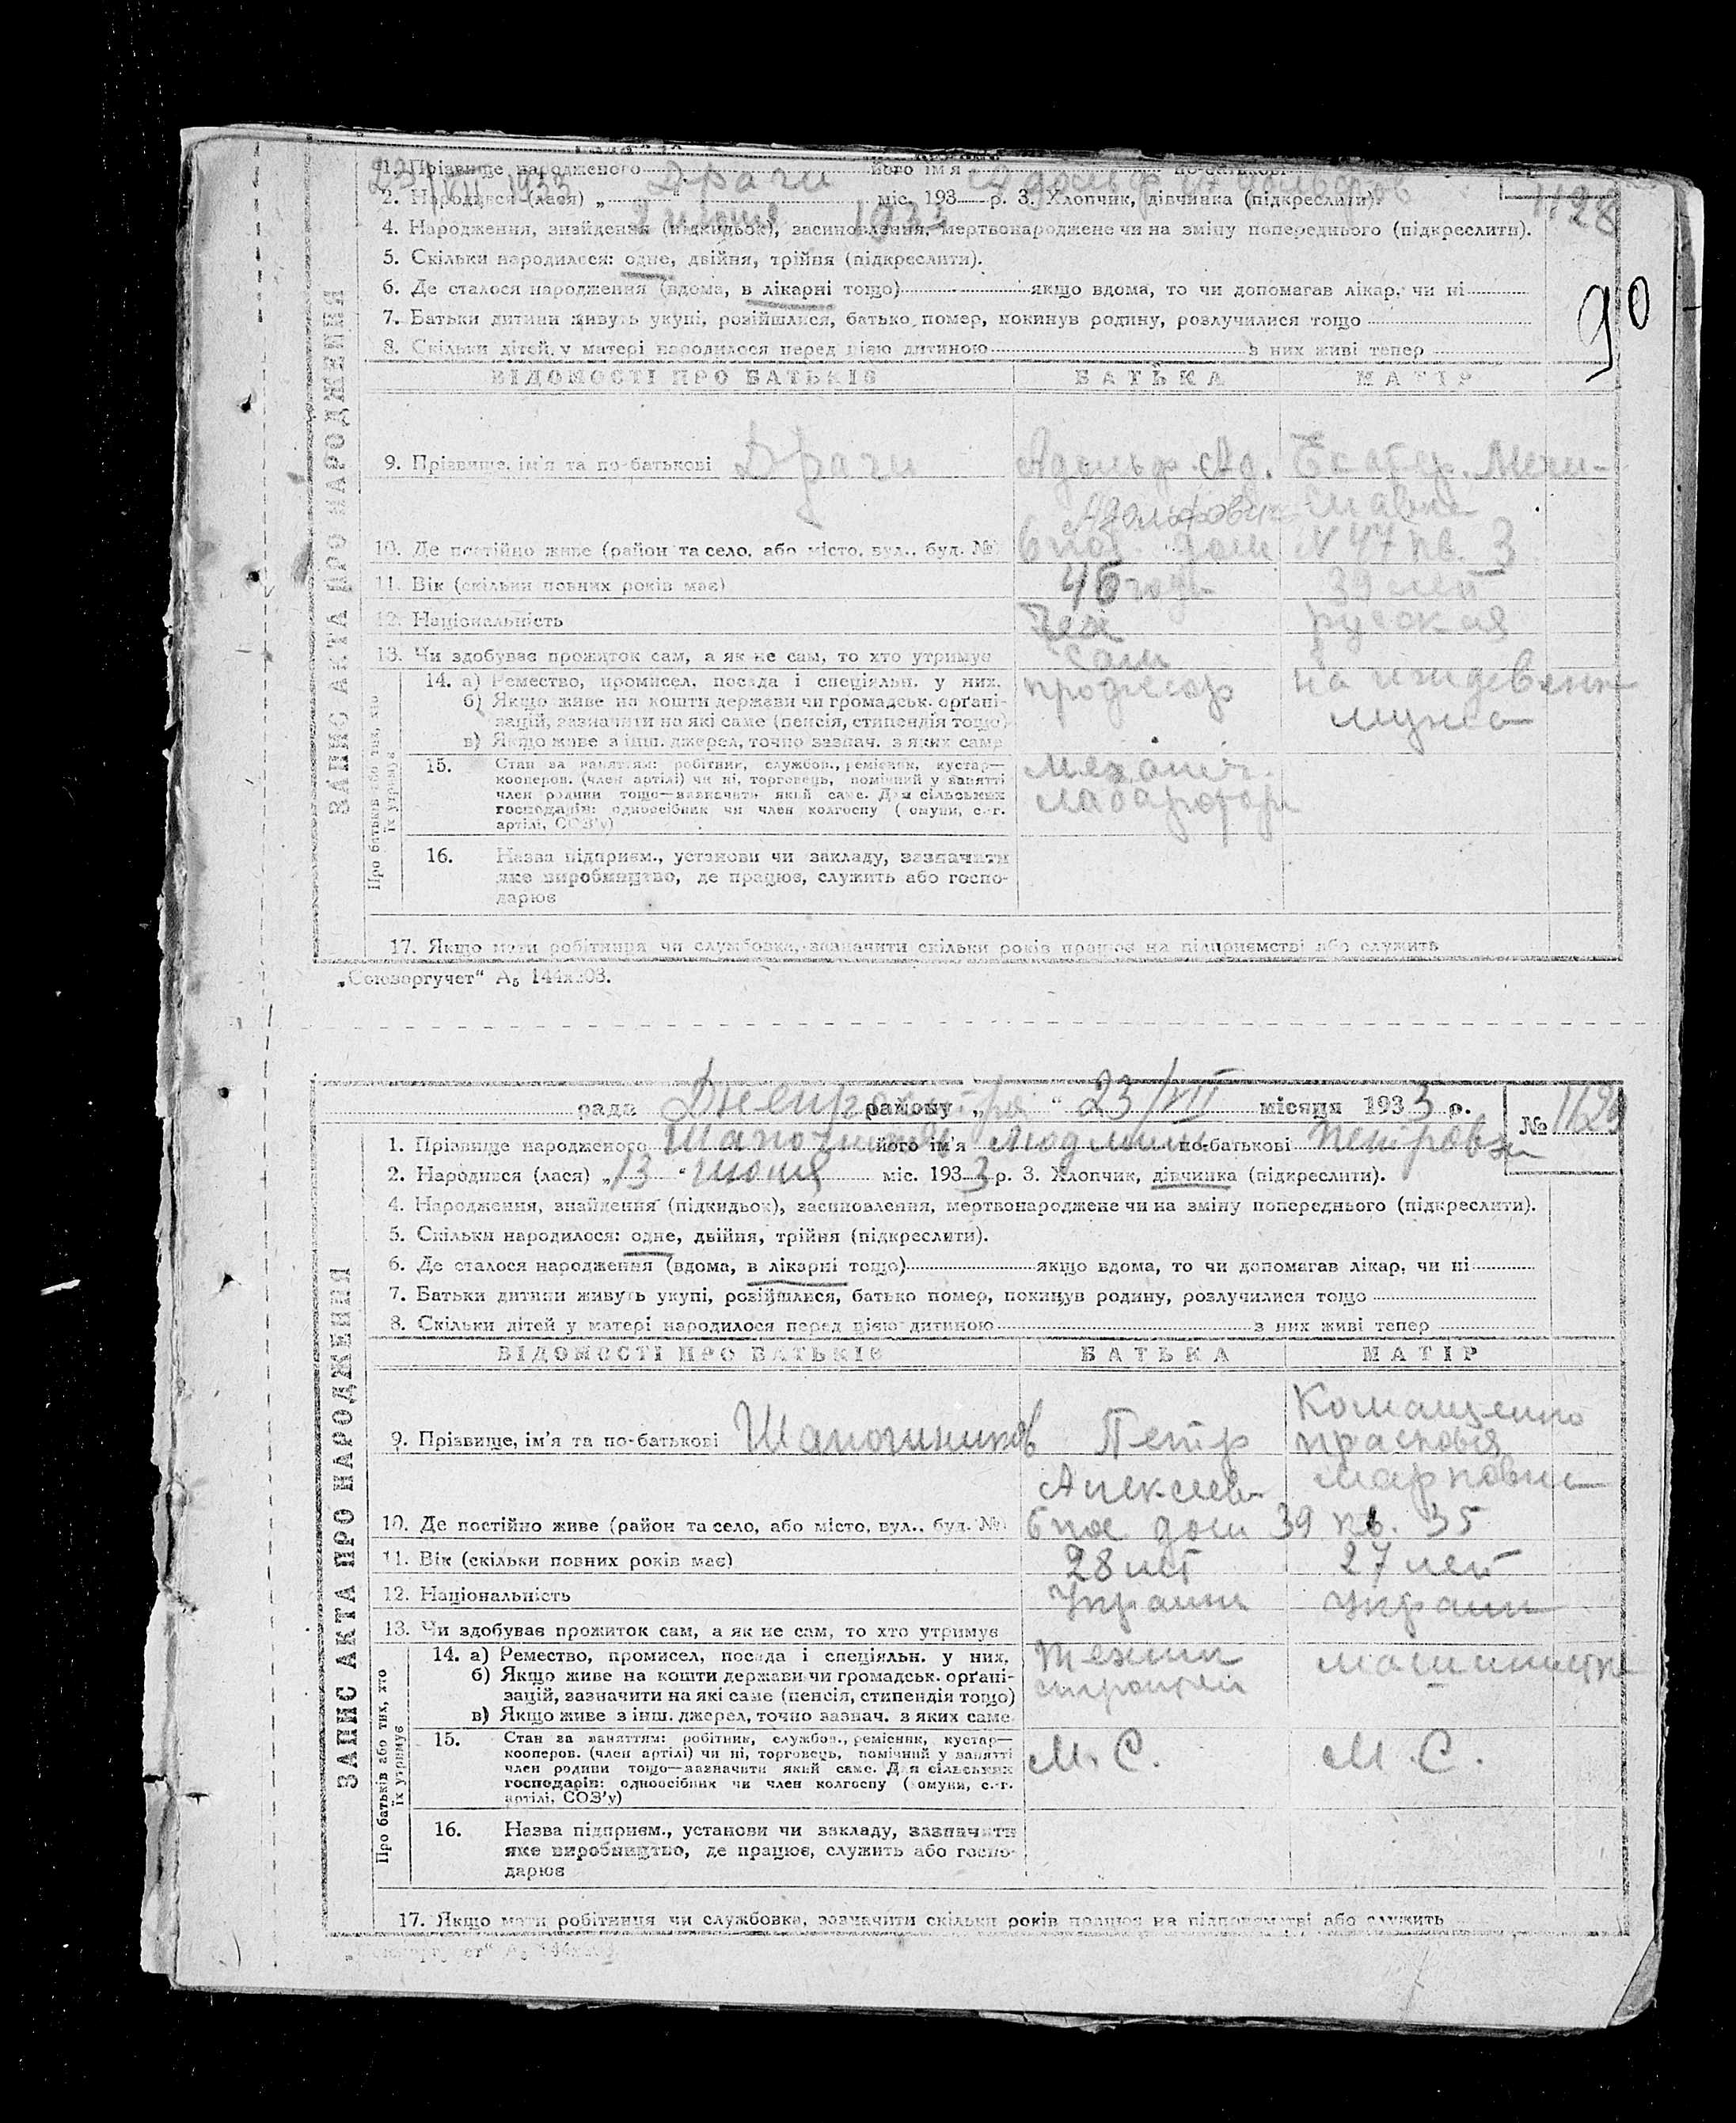 1. Прізвище народженого Драги його ім'я Адольф по-батькові Адольфов
23/VII 1933
1128
2. Народився (лася) „ “ міс. 193 р. 3. Хлопчик, дівчинка (підкреслити).
июня 1933
4. Народження, знайдення (підкидьок), засиновлення, мертвонароджене чи на зміну попереднього (підкреслити).
5. Скільки народилося: одне, двійня, трійня (підкреслити).
6. Де сталося народження (вдома, в лікарні тощо) якщо вдома, то чи допомагав лікар, чи ні
90
7. Батьки дитини живуть укупі, розійшлися, батько помер, покинув родину, розлучилися тощо
8. Скільки дітей у матері народилося перед цією дитиною з них живі тепер
ЗАПИС АКТА ПРО НАРОДЖЕННЯ
ВІДОМОСТІ ПРО БАТЬКІВ БАТЬКА МАТІР
9. Прізвище, ім'я та по-батькові Драги Адольф Ад. Екатер.
Адольфович
10. Де постійно живе (район та село, або місто, вул., буд. №) 6 пос. дом N 47 кв. 3
11. Вік (скільки повних років має) 46 года 39 лет
12. Національність Чех русская
13. Чи здобуває прожиток сам, а як не сам, то хто утримує сам
Про батьків або тих, хто їх утримує
14. а) Ремество, промисел, посада і спеціяльн. у них. професор на иждевении
б) Якщо живе на кошти держави чи громадськ. орґані-
зацій, зазначити на які саме (пенсія, стипендія тощо) мужа
в) Якщо живе з інш. джерел, точно зазнач. з яких саме
15. Стан за заняттям: робітник, службов., ремісник, кустар— Механич.
кооперов. (член артілі) чи ні, торговець, помічний у занятті
член родини тощо—зазначити який саме. Для сільських лабаратори
господарів: одноосібник чи член колгоспу (комуни, с.-г.
артілі, СОЗ'у)
16. Назва підприєм., установи чи закладу, зазначити
яке виробництво, де працює, служить або госпо-
дарює
17. Якщо мати робітниця чи службовка, зазначити скільки років працює на підприємстві або служить
„Союзоргучет“ А₅ 144х208.
рада района „ “ 23/VII місяця 1933 р.
№ 1129
1. Прізвище народженого його ім'я Людмила по-батькові Петровна
2. Народився (лася) „13“ июня міс. 1933 р. 3. Хлопчик, дівчинка (підкреслити).
4. Народження, знайдення (підкидьок), засиновлення, мертвонароджене чи на зміну попереднього (підкреслити).
5. Скільки народилося: одне, двійня, трійня (підкреслити).
6. Де сталося народження (вдома, в лікарні тощо) якщо вдома, то чи допомагав лікар, чи ні
7. Батьки дитини живуть укупі, розійшлися, батько помер, покинув родину, розлучилися тощо
8. Скільки дітей у матері народилося перед цією дитиною з них живі тепер
ЗАПИС АКТА ПРО НАРОДЖЕННЯ
ВІДОМОСТІ ПРО БАТЬКІВ БАТЬКА МАТІР
Комащенко
9. Прізвище, ім'я та по-батькові Шапошников Петр Прасковья
Алексеев Марковна
10. Де постійно живе (район та село, або місто, вул., буд. №) 6 пос дом 39 кв. 35
11. Вік (скільки повних років має) 28 лет 27 лет
12. Національність Украин Украин
13. Чи здобуває прожиток сам, а як не сам, то хто утримує
Про батьків або тих, хто їх утримує
14. а) Ремество, промисел, посада і спеціяльн. у них. Техник машинистка
б) Якщо живе на кошти держави чи громадськ. орґані- строител
зацій, зазначити на які саме (пенсія, стипендія тощо)
в) Якщо живе з інш. джерел, точно зазнач. з яких саме
15. Стан за заняттям: робітник, службов., ремісник, кустар— М. С. М. С.
кооперов. (член артілі) чи ні, торговець, помічний у занятті
член родини тощо—зазначити який саме. Для сільських
господарів: одноосібник чи член колгоспу (комуни, с.-г.
артілі, СОЗ'у)
16. Назва підприєм., установи чи закладу, зазначити
яке виробництво, де працює, служить або госпо-
дарює
17. Якщо мати робітниця чи службовка, зазначити скільки років працює на підприємстві або служить
„Союзоргучет“ А₅ 144х208